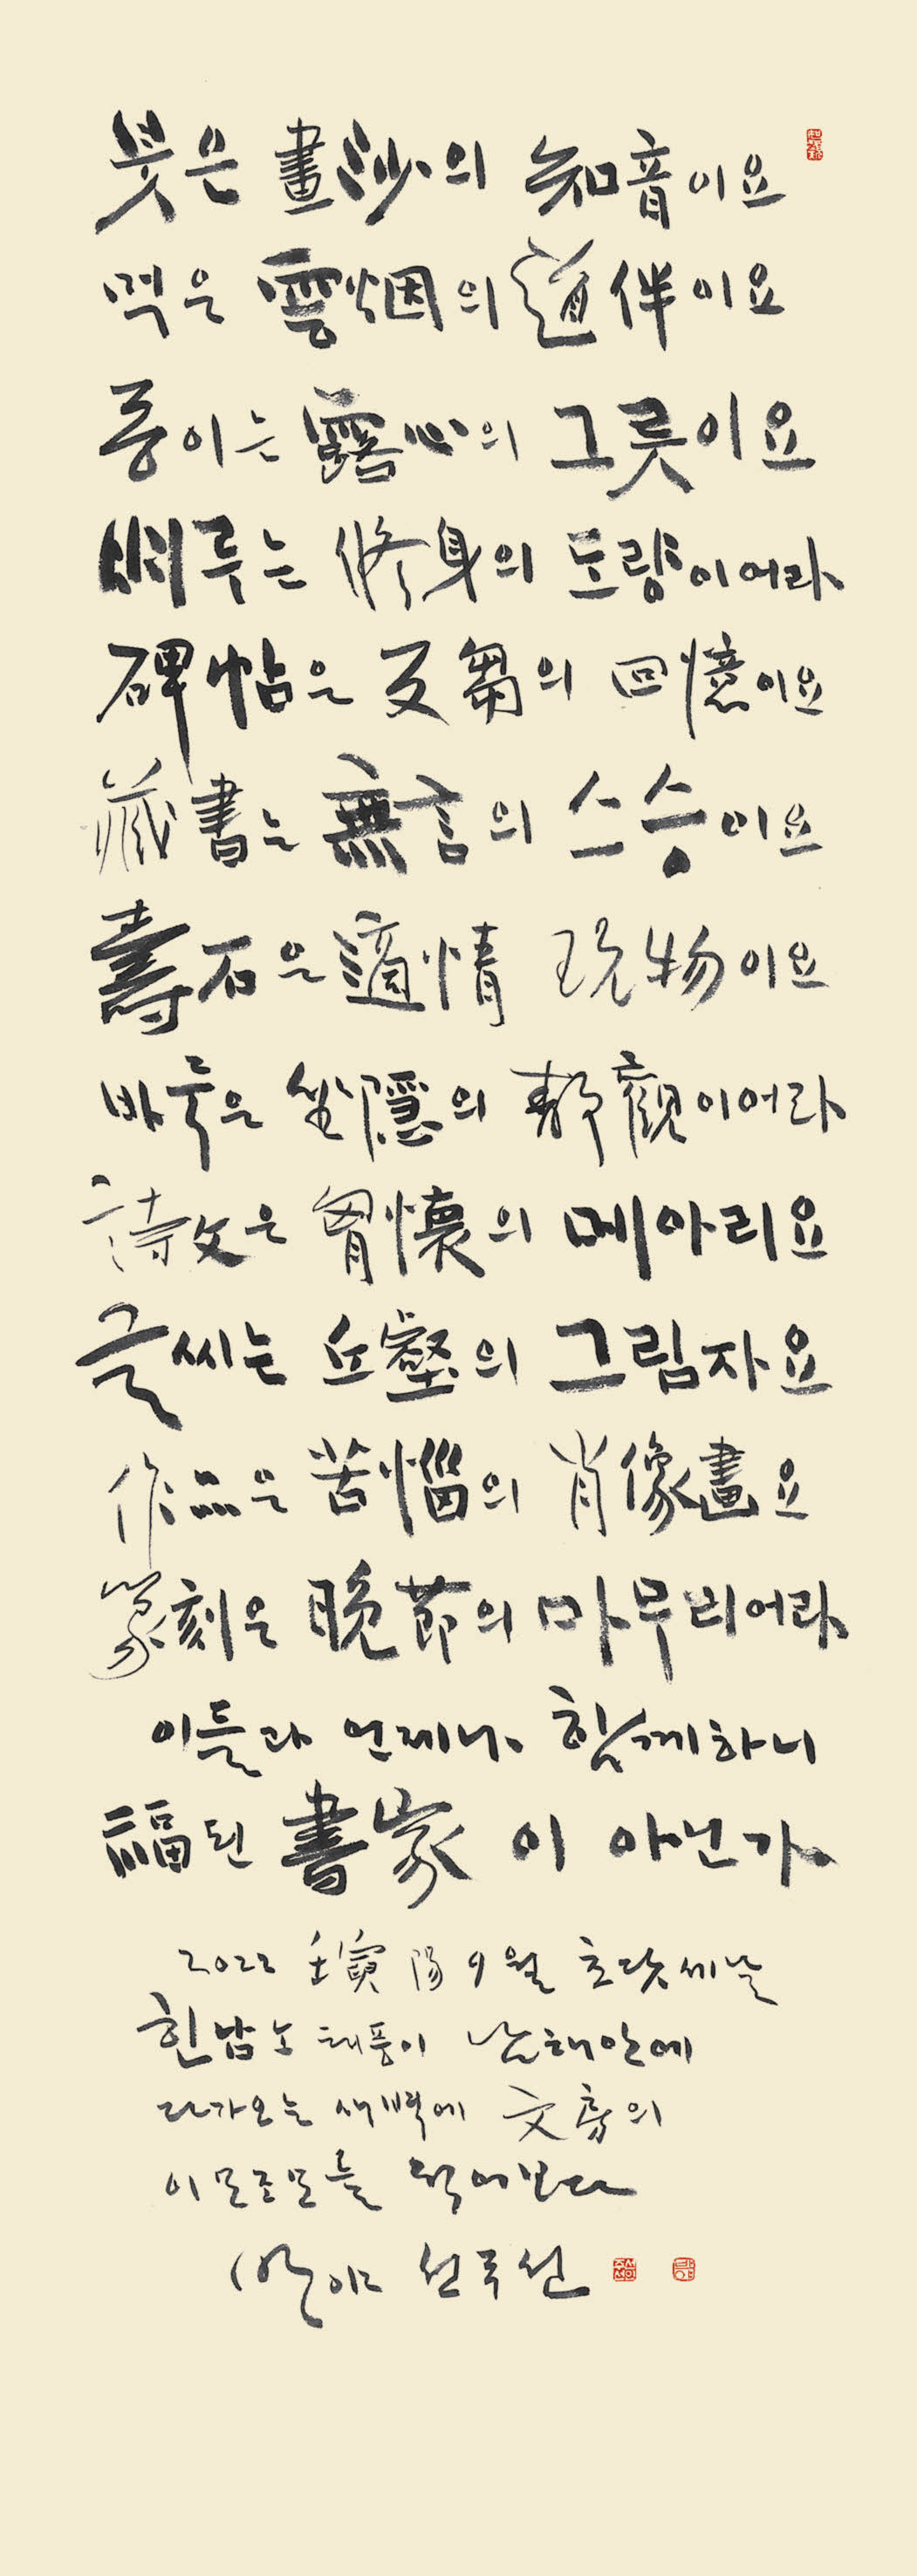 붓은 畫沙의 知音이요
먹은 雲烟의 道伴이요
종이는 露心의 그릇이요
벼루는 修身의 도량이어라
碑帖은 反芻의 回憶이요
藏書는 無言의 스승이요
壽石은 適情 玩物이요
바둑은 坐隱의 靜觀이어라
詩文은 胸懷의 메아리요
글씨는 丘壑의 그림자요
作品은 苦惱의 肖像畫요
篆刻은 晩節의 마무리어라
이들과 언제나 함께하니
福된 書家이 아닌가
2022 壬寅 陽9월 초닷세날
힌남노 태풍이 남해안에
다가오는 새벽에 文房의
이모조모를 적어보다
선주선